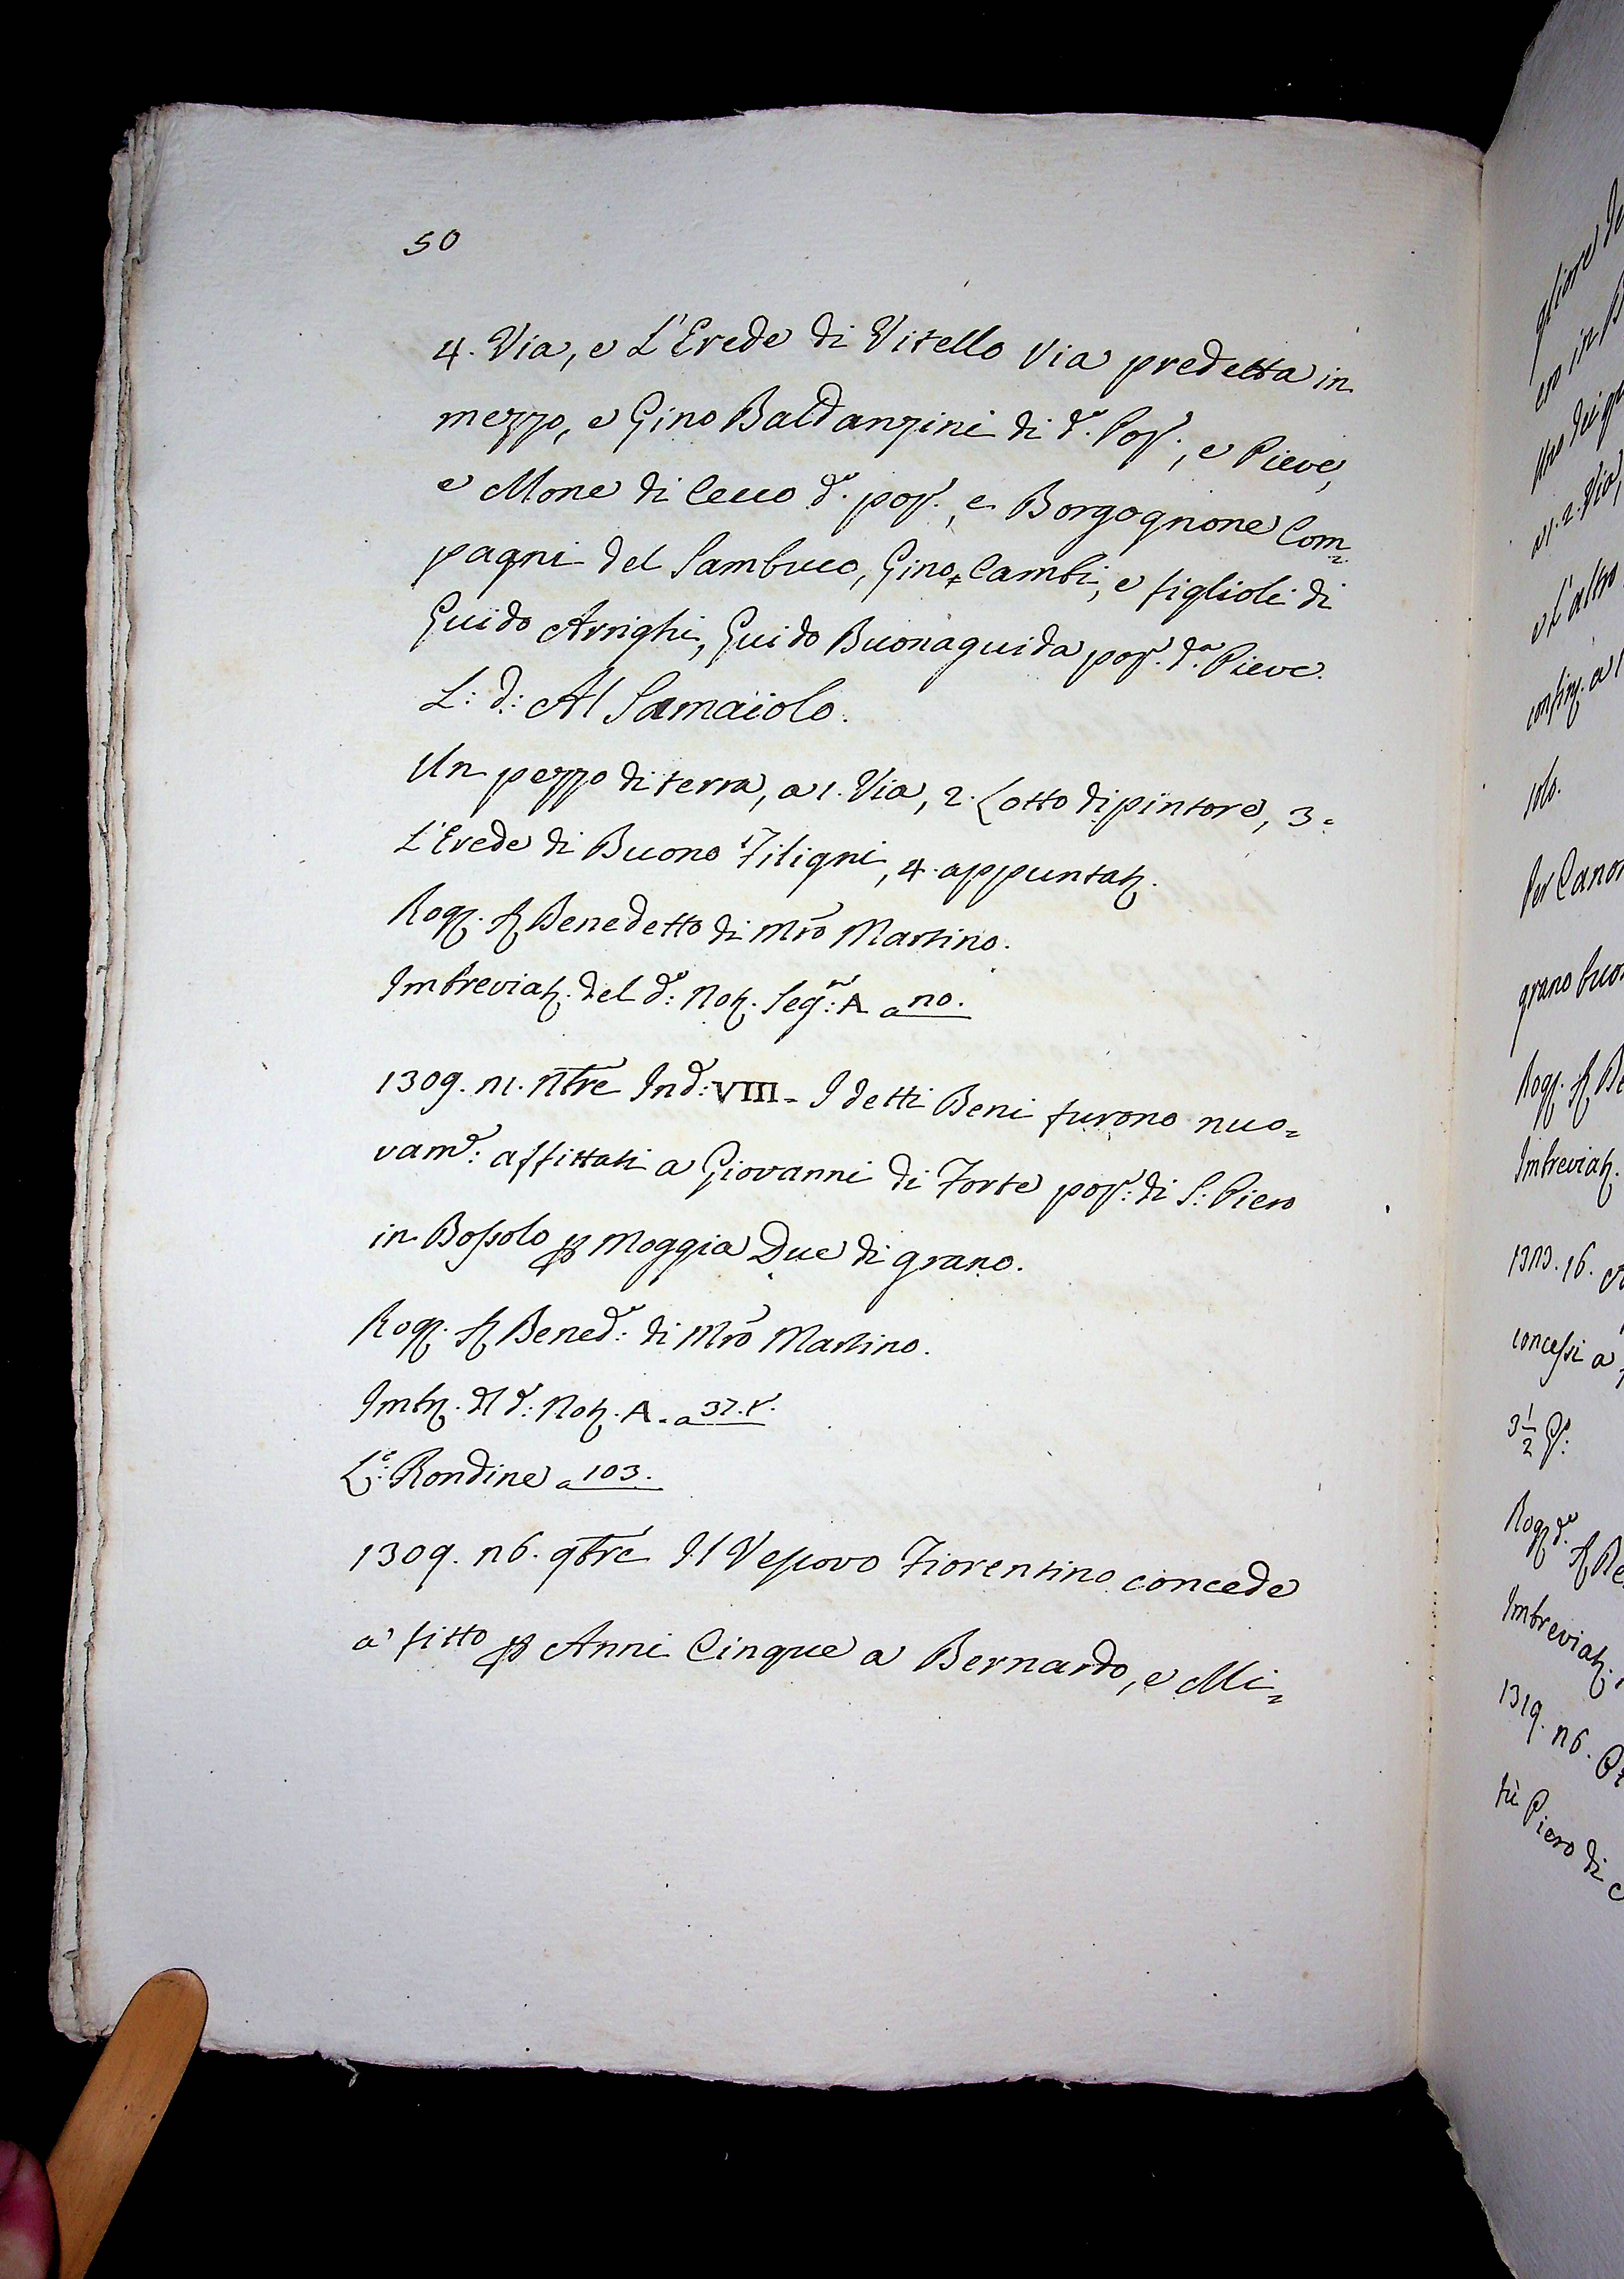 50
4. Via, e L'Erede di Vitello Via predetta in
mezzo, e Gino Baldanzini di d.º Pop., e Pieve,
e Mone di Cecco d.º pop., e Borgognone Com=
pagni del Sambuco, Gino Cambi, e figlioli di
Guido Arrighi, Guido Buonaguida pop. d.ª Pieve.
L: d: Al Samaiolo.
Un pezzo di terra, a 1. Via, 2. Lotto dipintore, 3.
L'Erede di Buono Filigni, 4. appuntat.
Rog. S. Benedetto di Mrõ Martino.
Imbreviat. del d.º: Not. Seg: A a no.
1309. n1. Nbre Ind: VIII. I detti Beni furono nuo=
vam.e: affittati a Giovanni di Forte pop: di S: Piero
in Bossolo p Moggia Due di grano.
Rog. S. Bened.º: di Mrõ Martino.
Imbr. dl d.º: Not. A. a 37. t.
L.e: Rondine a 103.
1309. n6. 9bre Il Vescovo Fiorentino concede
a' fitto p Anni Cinque a Bernardo, e Mi=
Per Canon
grano buon
Imbreviat.
concessi a
3 1/2
Imbreviat.
1319. n6.
Piero di